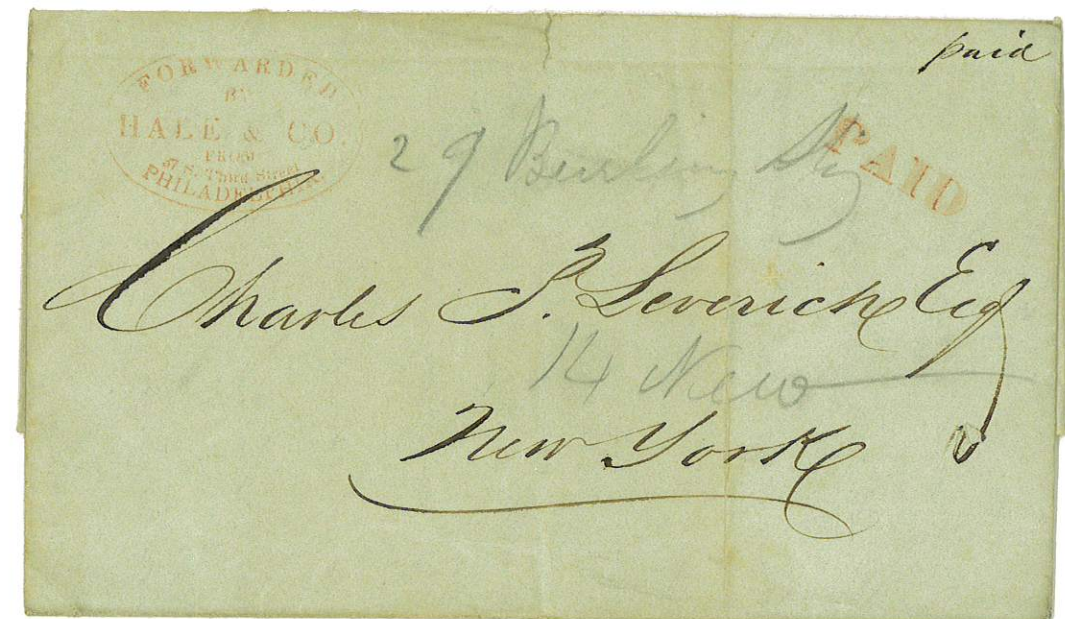 paid
FORWARDED
BY
HALE & CO.
FROM
37 S. Third Street
PHILADELPHIA.
PAID
29 Burling Slip
Charles P. Leverich Esq
14 New
New York